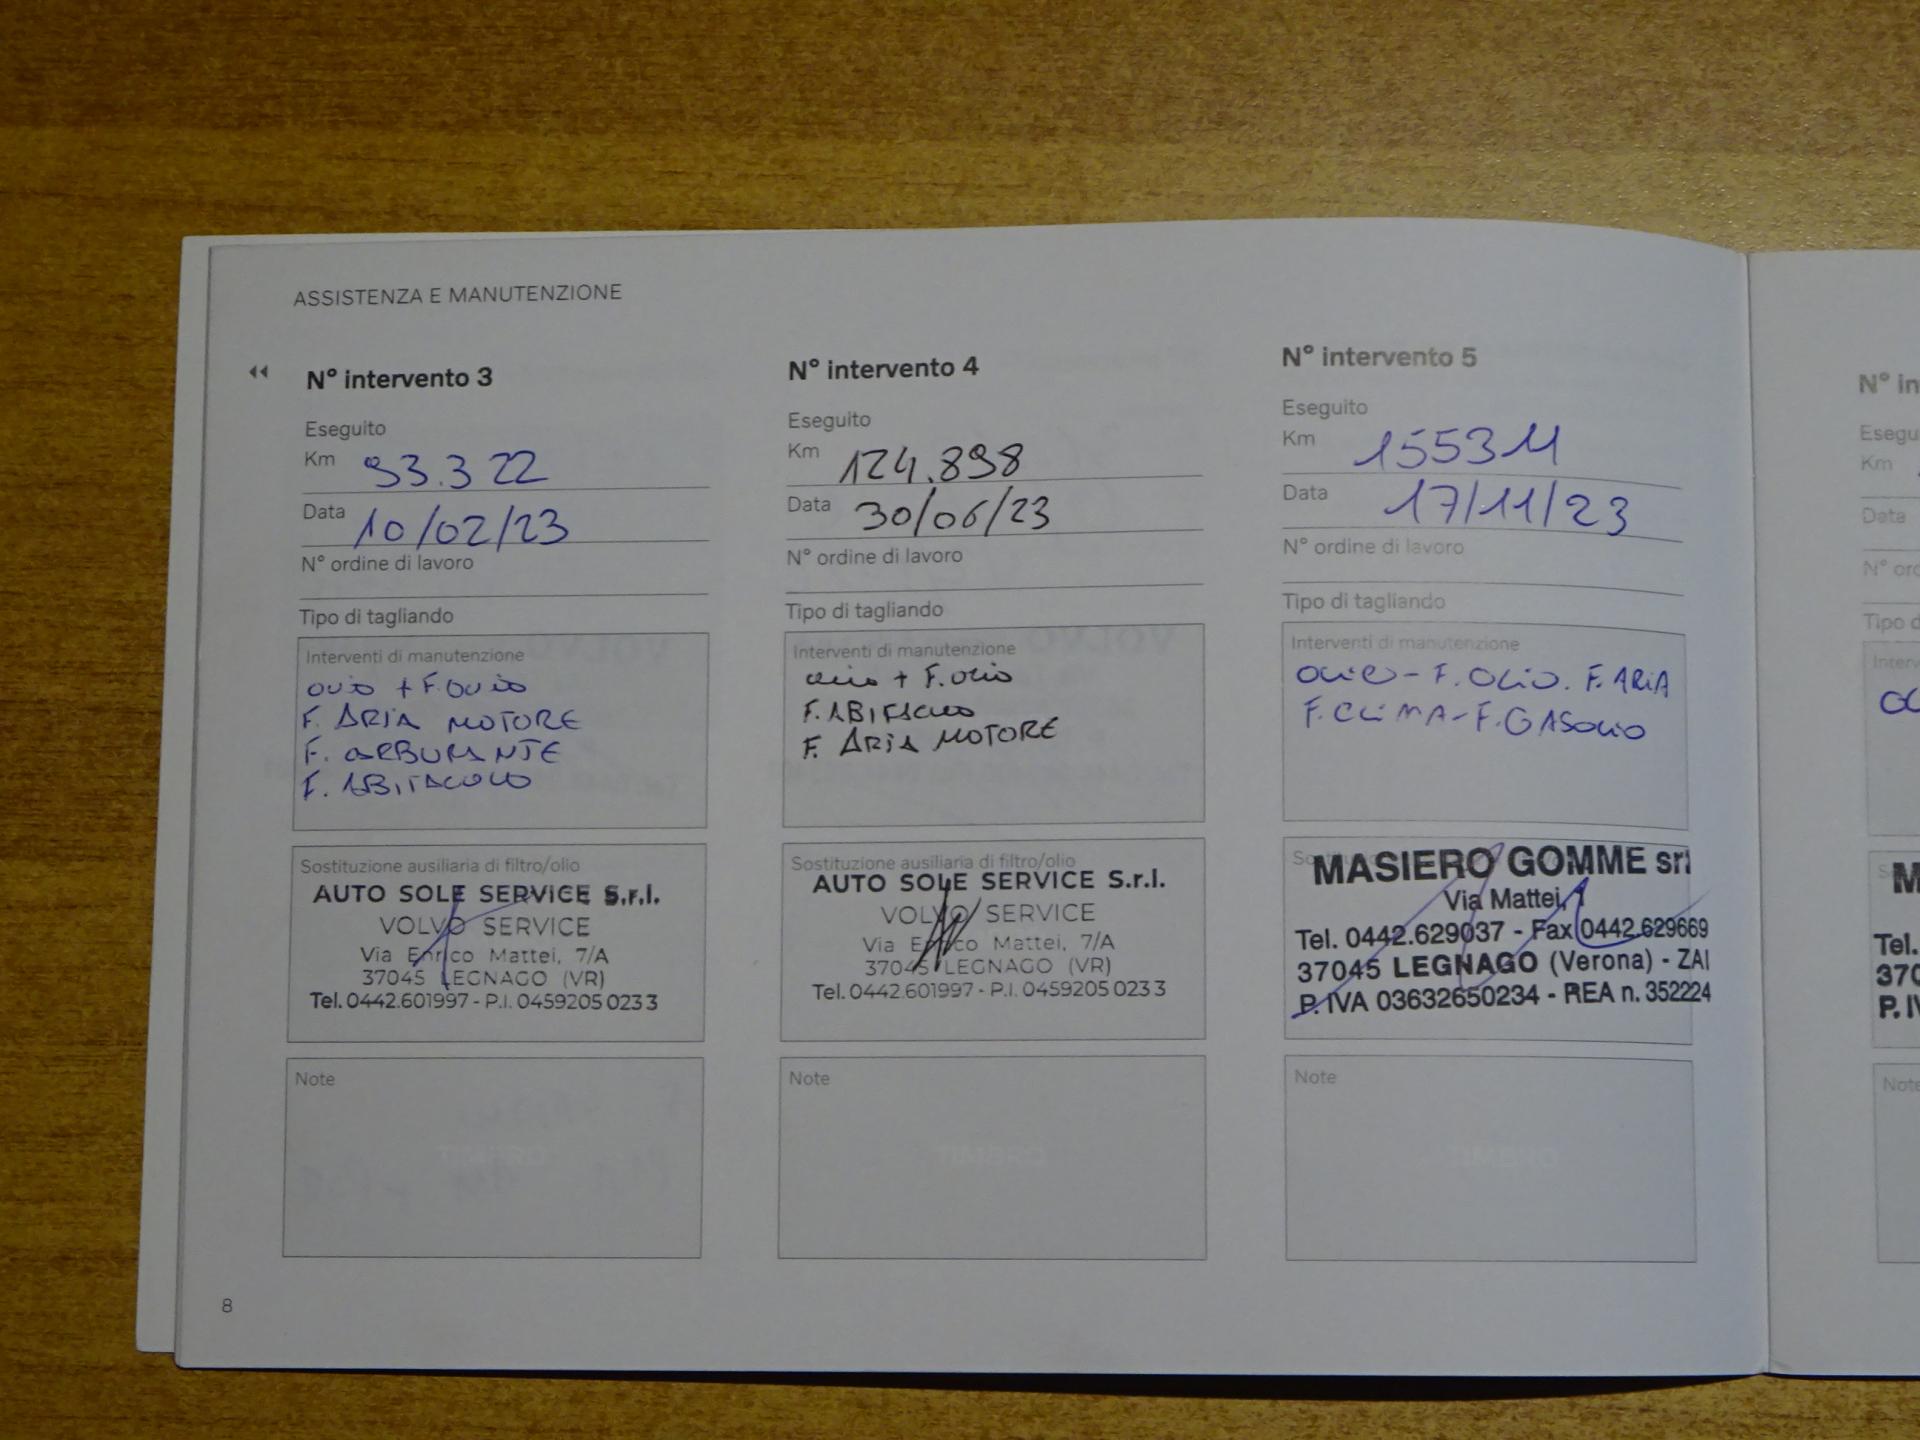 ASSISTENZA E MANUTENZIONE
N° intervento 3
Eseguito
Km 93.322
Data 10/02/23
N° ordine di lavoro
Tipo di tagliando
Interventi di manutenzione
OLIO + F. OLIO
F. ARIA MOTORE
F. CARBURANTE
F. ABITACOLO
Sostituzione ausiliaria di filtro/olio
AUTO SOLE SERVICE S.r.l.
VOLVO SERVICE
Via Enrico Mattei, 7/A
37045 LEGNAGO (VR)
Tel. 0442.601997 - P.I. 0459205 023 3
Note
8
N° intervento 4
Eseguito
Km 124.898
Data 30/06/23
N° ordine di lavoro
Tipo di tagliando
Interventi di manutenzione
OLIO + F. OLIO
F. ABITACOLO
F. ARIA MOTORE
Sostituzione ausiliaria di filtro/olio
AUTO SOLE SERVICE S.r.l.
VOLVO SERVICE
Via Enrico Mattei, 7/A
37045 LEGNAGO (VR)
Tel. 0442.601997 - P.I. 0459205 023 3
Note
N° intervento 5
Eseguito
Km 155311
Data 17/11/23
N° ordine di lavoro
Tipo di tagliando
Interventi di manutenzione
OLIO - F. OLIO. F. ARIA
F. CLIMA - F. GASOLIO
MASIERO GOMME srl
Via Mattei, 1
Tel. 0442.629037 - Fax 0442.629669
37045 LEGNAGO (Verona) - ZAI
P. IVA 03632650234 - REA n. 352224
Note
N° in
Esegu
Km
Data
N° ord
Tipo d
Interv
Tel.
370
P. IV
Note